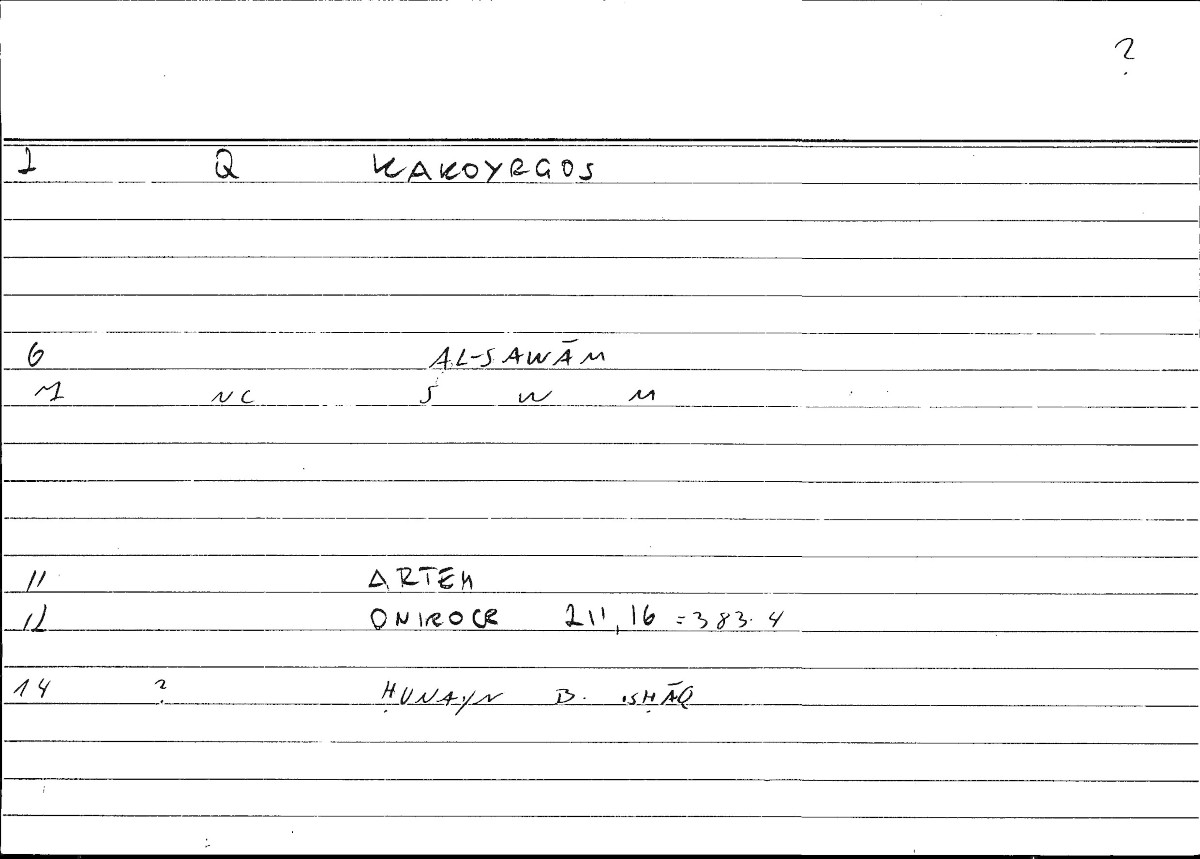 ?
1 Q KAKOYRGOS
6 AL-SAWĀM
M1 NC S W M
11 ARTEM
12 ONIROCR 211,16 = 383.4
14 ? ḤUNAYN B. ISḤĀQ